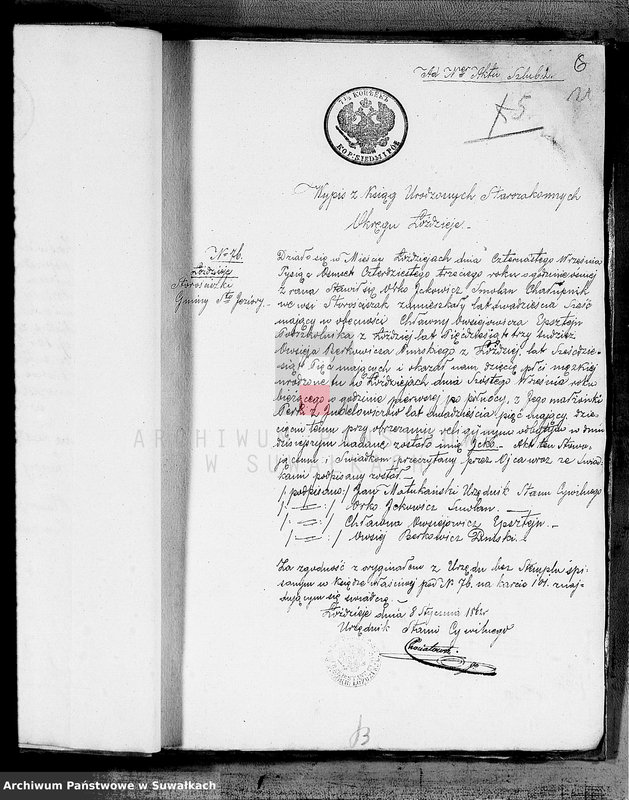 Ad Nr Aktu Szlubu
6
21
+5.
7½ KOPIEEK
KOP: SIEDM I PÓŁ
Wypis z Ksiąg Urodzonych Starozakonnych
Okręgu Łoździeje.-
No 76.
Łoździeje
Starociszki
Gminy Sto Jeziory.-
Działo się w Mieście Łoździejach dnia Czternastego Września
Tysiąc Ośmset Czterdziestego trzeciego roku o godzinie ósmej
z rana. Stawił się Orko Jckowicz Smolan Chałupnik
we wsi Starociszak zamieszkały lat dwadzieścia sześć
mający w obecności Chławny Owsiejowicza Epsztejn
Podszkolnika z Łoździej lat Pięćdziesiąt trzy tudzież
Owsieja Berkowicza Dumskiego z Łoździej, lat sześćdzie-
siąt Pięć mających i okazał nam dziecię płci męzkiej
urodzone tu w Łoździejach dnia Szóstego Września roku
bieżącego o godzinie pierwszej po północy, z Jego małżonki
lat dwadzieścia pięć mającej, dzie-
cięciu temu przy obrzezaniu religijnym odbytym w dniu
dzisiejszym nadane zostało imię Jcko.- Akt ten Stawa-
jącemu i Świadkom przeczytany przez Ojca wraz ze Świad-
kami podpisany został.-
/:podpisano:/ Jan Matukański Urzędnik Stanu Cywilnego
/:-"-:/ Orko Jckowicz Smolan.-
/:-"-:/ Chławna Owsiejowicz Epsztejn.-
/:-"-:/ Owsiej Berkowicz Dumski.
Za zgodność z oryginałem z Urzędu bez Stempla spi-
sanym w Księdze właściwej pod N. 76. na karcie 101. znaj-
dującym się świadczę.-
Łoździeje dnia 8 Stycznia 186 r.
Urzędnik Stanu Cywilnego
B
ARCHIWUM
W SUWAŁKACH
Archiwum Państwowe w Suwałkach